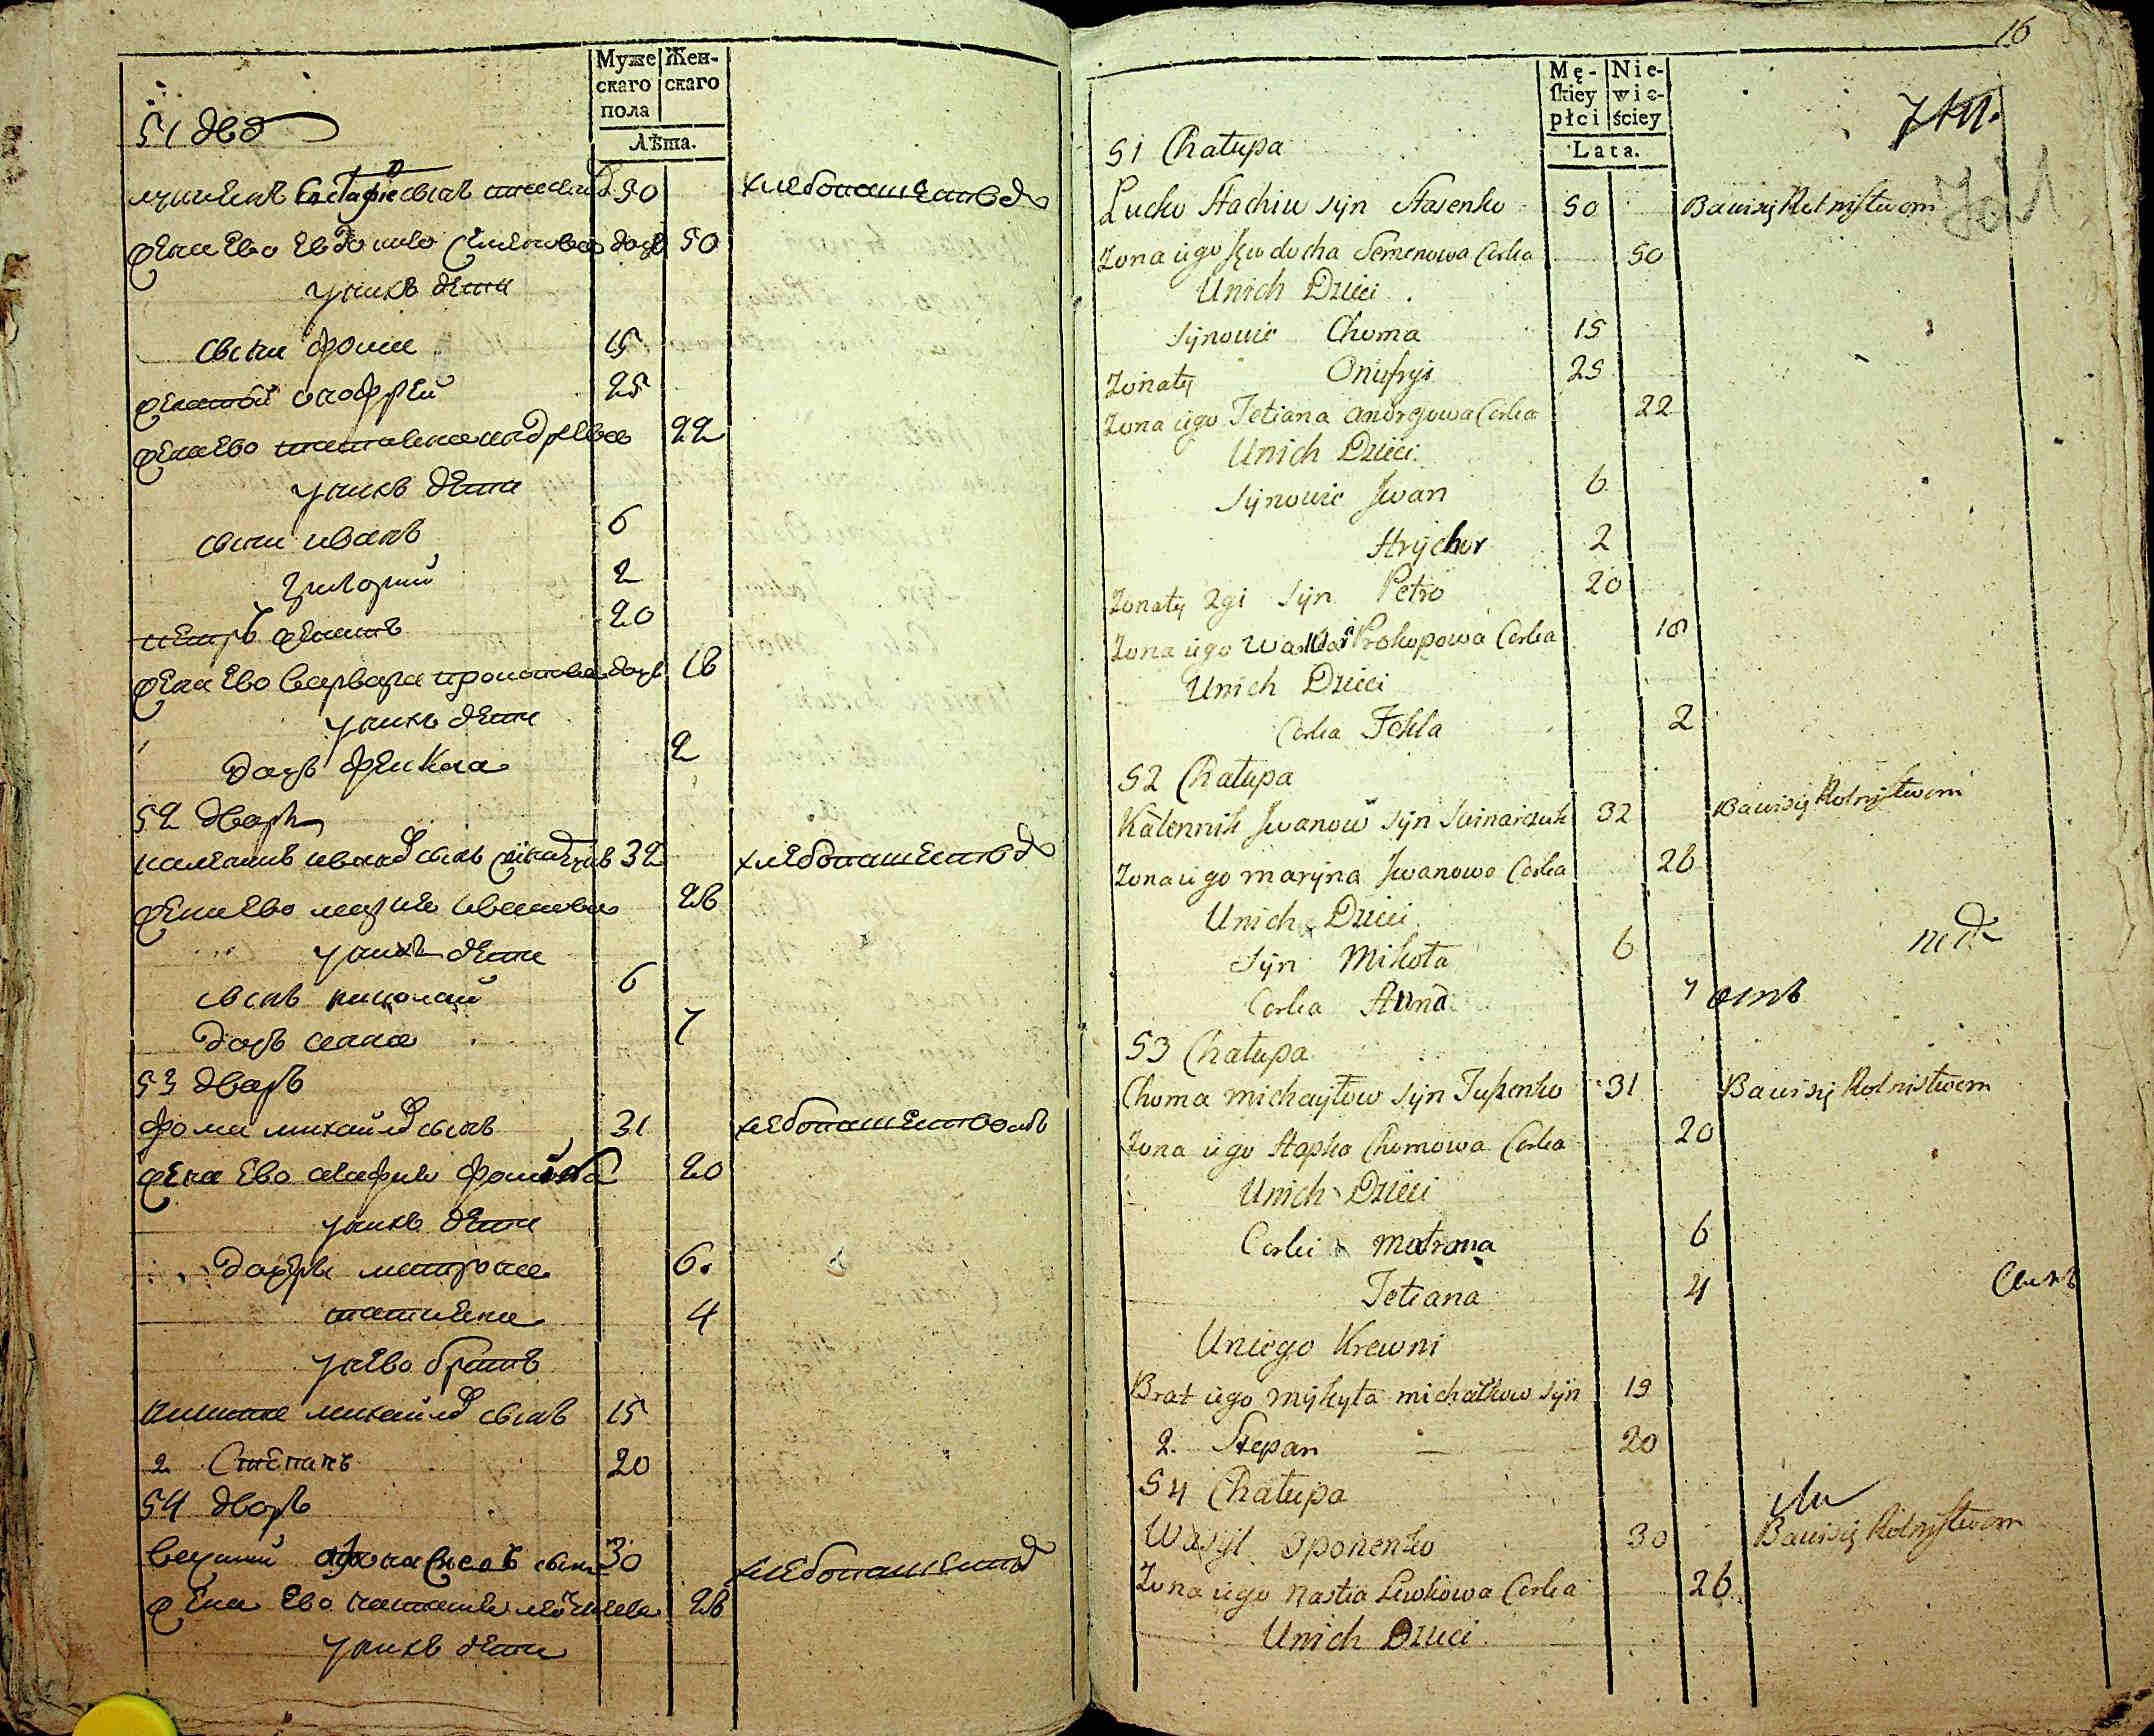 Муже
скаго
пола
Жен-
скаго
Лѣта.
51 двд
Евстафіе сынъ 50 хлебопашествод
жена ево Евдокия Семенова дочь 50
унихъ дети
сыни фома 15
женатой онофрей 25
жена ево татияна андреева 22
унихъ дети
сыни иванъ 6
григорий 2
петръ женатъ 20
жена ево варвара дочь 18
уникъ дети
дочь фекла 2
52 дворъ
калеников иванов сынъ 32 хлебопашествод
жена ево мария иванова 26
уникъ дети
сынъ николай 6
дочь анна 7
53 дворъ
фома михайлов сынъ 31 хлебопашествомъ
жена ево агафия фомина 20
уникъ дети
дочери матрона 6.
татияна 4
унево братъ
никита михайлов сынъ 15
2 Степанъ 20
54 дворъ
василий сынъ 30 хлебопашество
жена ево наталия 26
уникъ дети
16
Mę-
skiey
płci
Nie-
wie-
ściey
Lata.
51 Chałupa
Lucko Stachiw syn Stasenko 50 Bawi się Rolnistwem
Zona iego Jewdocha Semenowa Corka 50
Unich Dzieci
Synowie Choma 15
Zonaty Onufryi 25
Zona iego Tetiana Andrejowa Corka 22
Unich Dzieci
Synowie Jwan 6
Hrychor 2
Zonaty 2gi syn Petro 20
Zona iego Prokopowa Corka 18
Unich Dzieci
Corka Fekla 2
52 Chałupa
Kalennik Jwanow syn Swinarczuk 32 Bawi się Rolnistwem
Zona iego maryna Jwanowa Corka 26
Unich Dzieci
Syn Mikoła 6
Corka Anna 7
53 Chałupa
Choma michayłow syn 31 Bawi się Rolnistwem
Zona iego Hapka Chomowa Corka 20
Unich Dzieci
Corki matrona 6
Tetiana 4
Uniego Krewni
Brat iego mykyta michałkow syn 19
2. Stepan 20
54 Chałupa
Wasyl Oponenko 30 Bawi się Rolnistwem
Zona iego Nastia Lewkowa Corka 26
Unich Dzieci